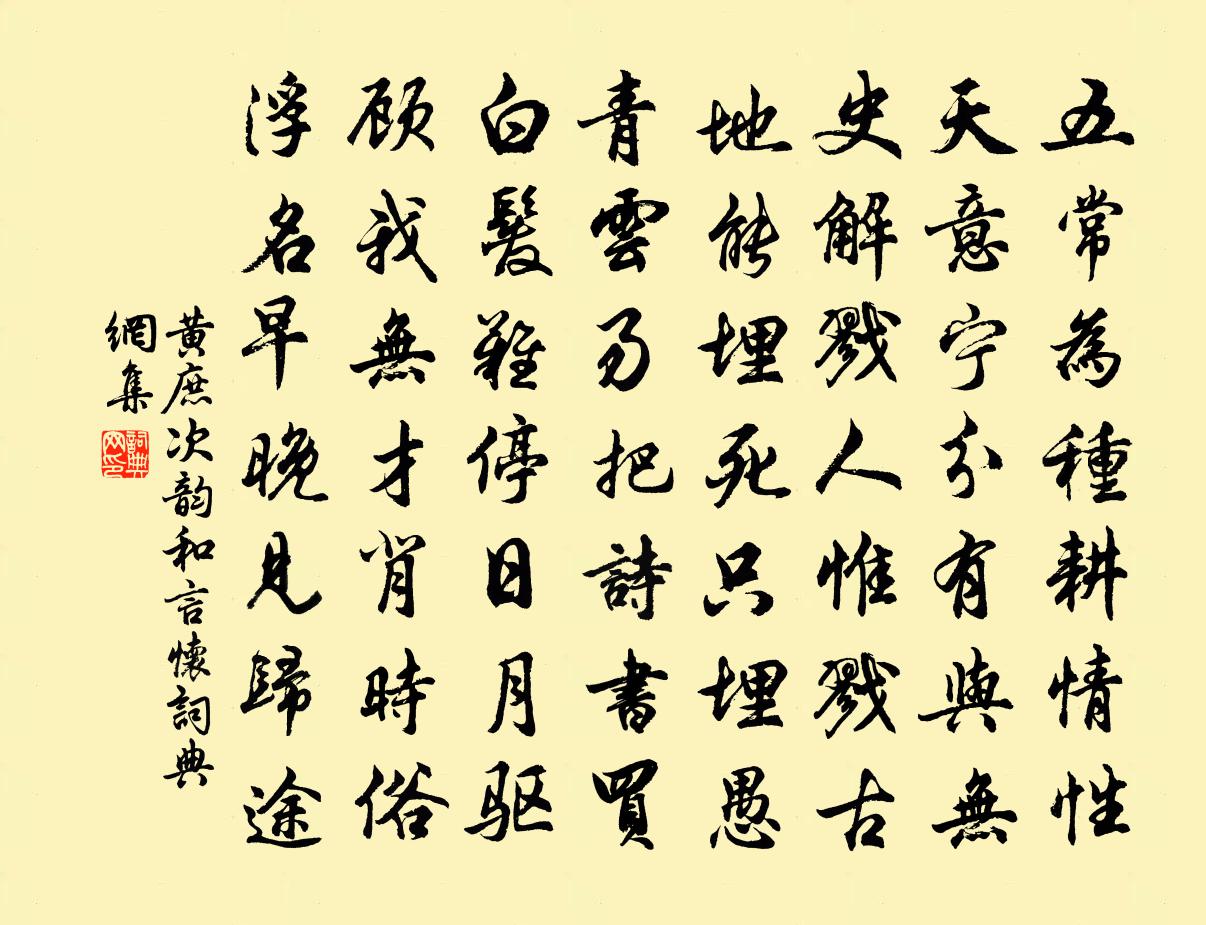 五常為種耕情性
天意宁分有與無
史解戮人惟戮古
地能埋死只埋愚
青雲易把詩書買
白髮難停日月驱
顾我無才背時俗
浮名早晚見歸途
黃庶次韵和言懷詞典
網集
詞典
网印